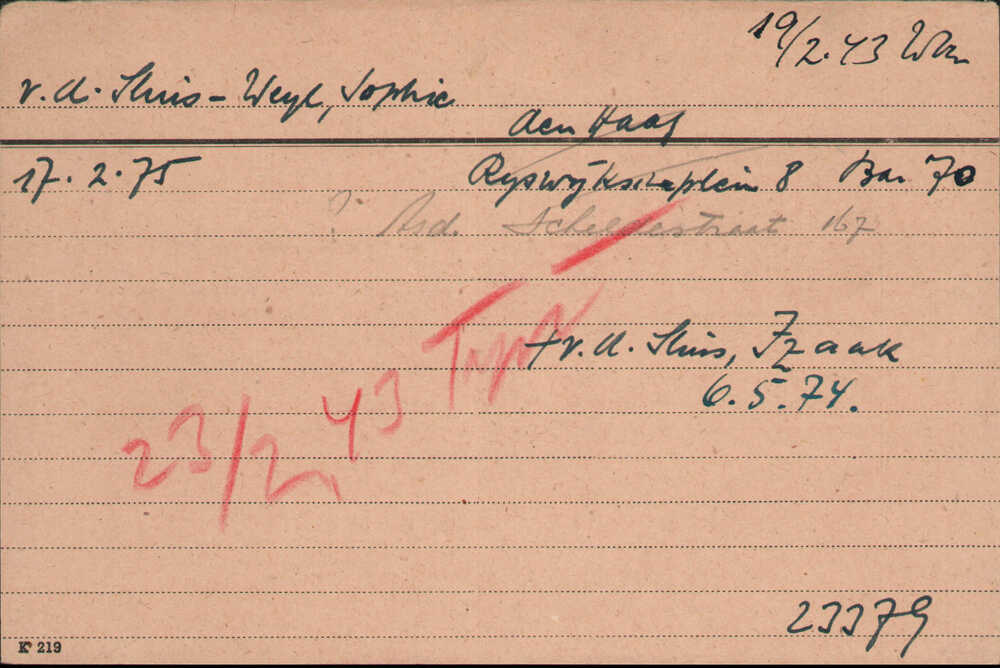 19/2.43
v.d. Sluis-Weyl, Sophie
den Haag
17.2.75 Ryswijkscheplein 8 Bar 70
? Asd. Scheldestraat 167
+ v.d. Sluis, Izaak
6.5.74.
23/2.43
23379
K 219